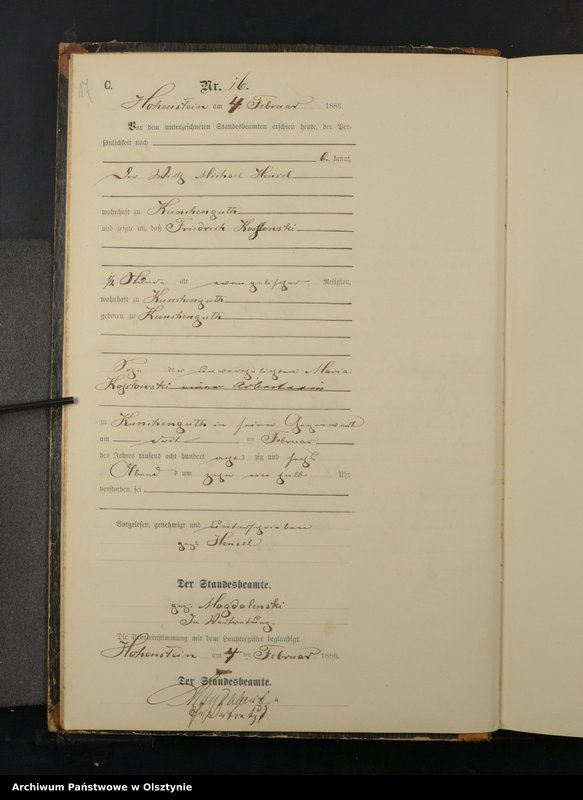 C.
Nr. 16.
Hohenstein am 4. Februar 1886.
Vor dem unterzeichneten Standesbeamten erschien heute, der Per-
sönlichkeit nach
be kannt,
Der Wirth Michael Hensel
wohnhaft zu Kunchenguth
und zeigte an, daß Friedrich Koslowski
1/2 Stunde alt evangelischer Religion,
wohnhaft zu Kunchenguth
geboren zu Kunchenguth
Sohn der unverehelichten Maria
Koslowski einer Arbeiterin
zu Kunchenguth in seiner Gegenwart
am drit ten Februar
des Jahres tausend acht hundert acht zig und sechs
Abend s um zehn ein halb Uhr
verstorben sei
Vorgelesen, genehmigt und unterschrieben
gez: Hensel
Der Standesbeamte.
gez: Magdalenski
In Vertretung.
Die Uebereinstimmung mit dem Hauptregister beglaubigt.
Hohenstein am 4 ten Februar 1886.
Der Standesbeamte.
Magdalenski
In Vertretung
Archiwum Państwowe w Olsztynie